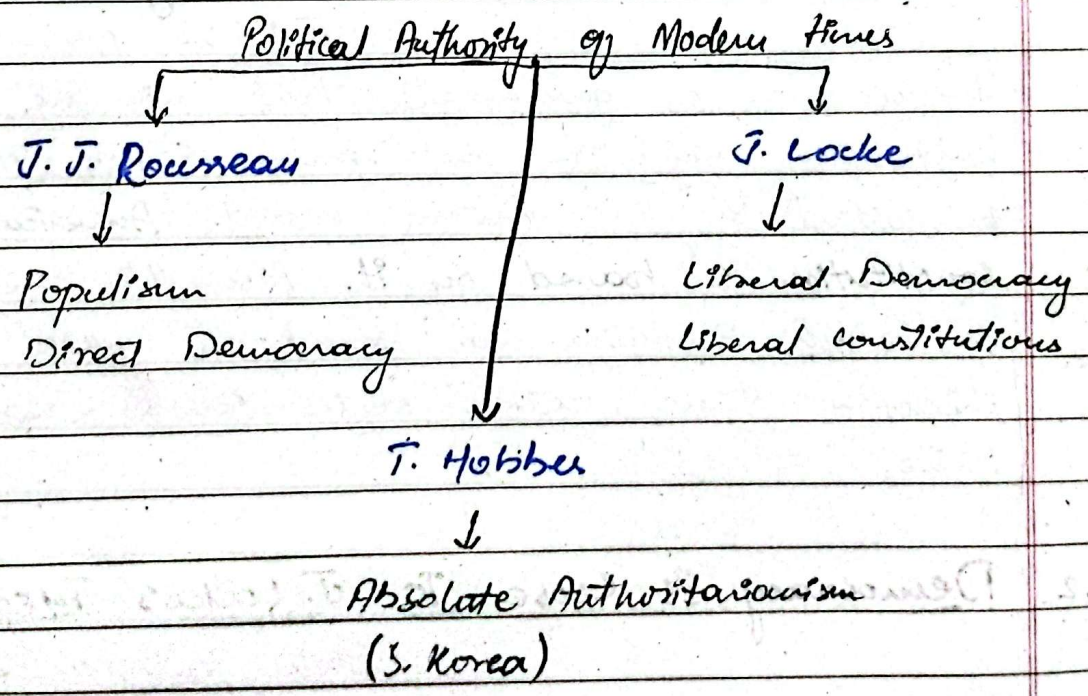 Political Authority of Modern times
J. J. Rousseau
J. Locke
Populism
Direct Democracy
Liberal Democracy
Liberal constitutions
T. Hobbes
Absolute Authoritarianism
(S. Korea)